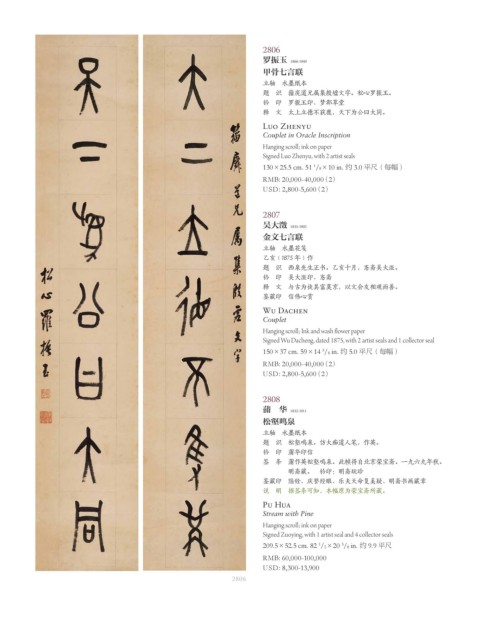 2806
罗振玉 1866-1940
甲骨七言联
立轴 水墨纸本
题 识 籀庼道兄属集殷虚文字。松心罗振玉。
钤 印 罗振玉印、梦郼草堂
释 文 大上立德不获麃，天下为公曰大同。
LUO ZHENYU
Couplet in Oracle Inscription
Hanging scroll; ink on paper
Signed Luo Zhenyu, with 2 artist seals
130 × 25.5 cm. 51 1/8 × 10 in. 约 3.0 平尺（每幅）
RMB: 20,000-40,000 (2)
USD: 2,800-5,600 (2)
2807
吴大澂 1835-1902
金文七言联
立轴 水墨花笺
乙亥（1875 年）作
题 识 西泉先生正书。乙亥十月，愙斋吴大澂。
钤 印 吴大澂印、愙斋
释 文 与古为徒其富莫京，以文会友相观而善。
鉴藏印 信侪心赏
WU DACHEN
Couplet
Hanging scroll; Ink and wash flower paper
Signed Wu Dacheng, dated 1875, with 2 artist seals and 1 collector seal
150 × 37 cm. 59 × 14 5/8 in. 约 5.0 平尺（每幅）
RMB: 20,000-40,000 (2)
USD: 2,800-5,600 (2)
2808
蒲 华 1832-1911
松壑鸣泉
立轴 水墨纸本
题 识 松壑鸣泉。仿大痴道人笔，作英。
钤 印 蒲华印信
签 条 蒲作英松壑鸣泉。此帧得自北京荣宝斋，一九六九年秋，
明斋藏。 钤印：明斋玩珍
说 明 据签条可知，本幅原为荣宝斋所藏。
PU HUA
Stream with Pine
Hanging scroll; ink on paper
Signed Zuoying, with 1 artist seal and 4 collector seals
209.5 × 52.5 cm. 82 1/2 × 20 5/8 in. 约 9.9 平尺
RMB: 60,000-100,000
USD: 8,300-13,900
籀庼道兄属集殷虚文字
松心罗振玉
2806